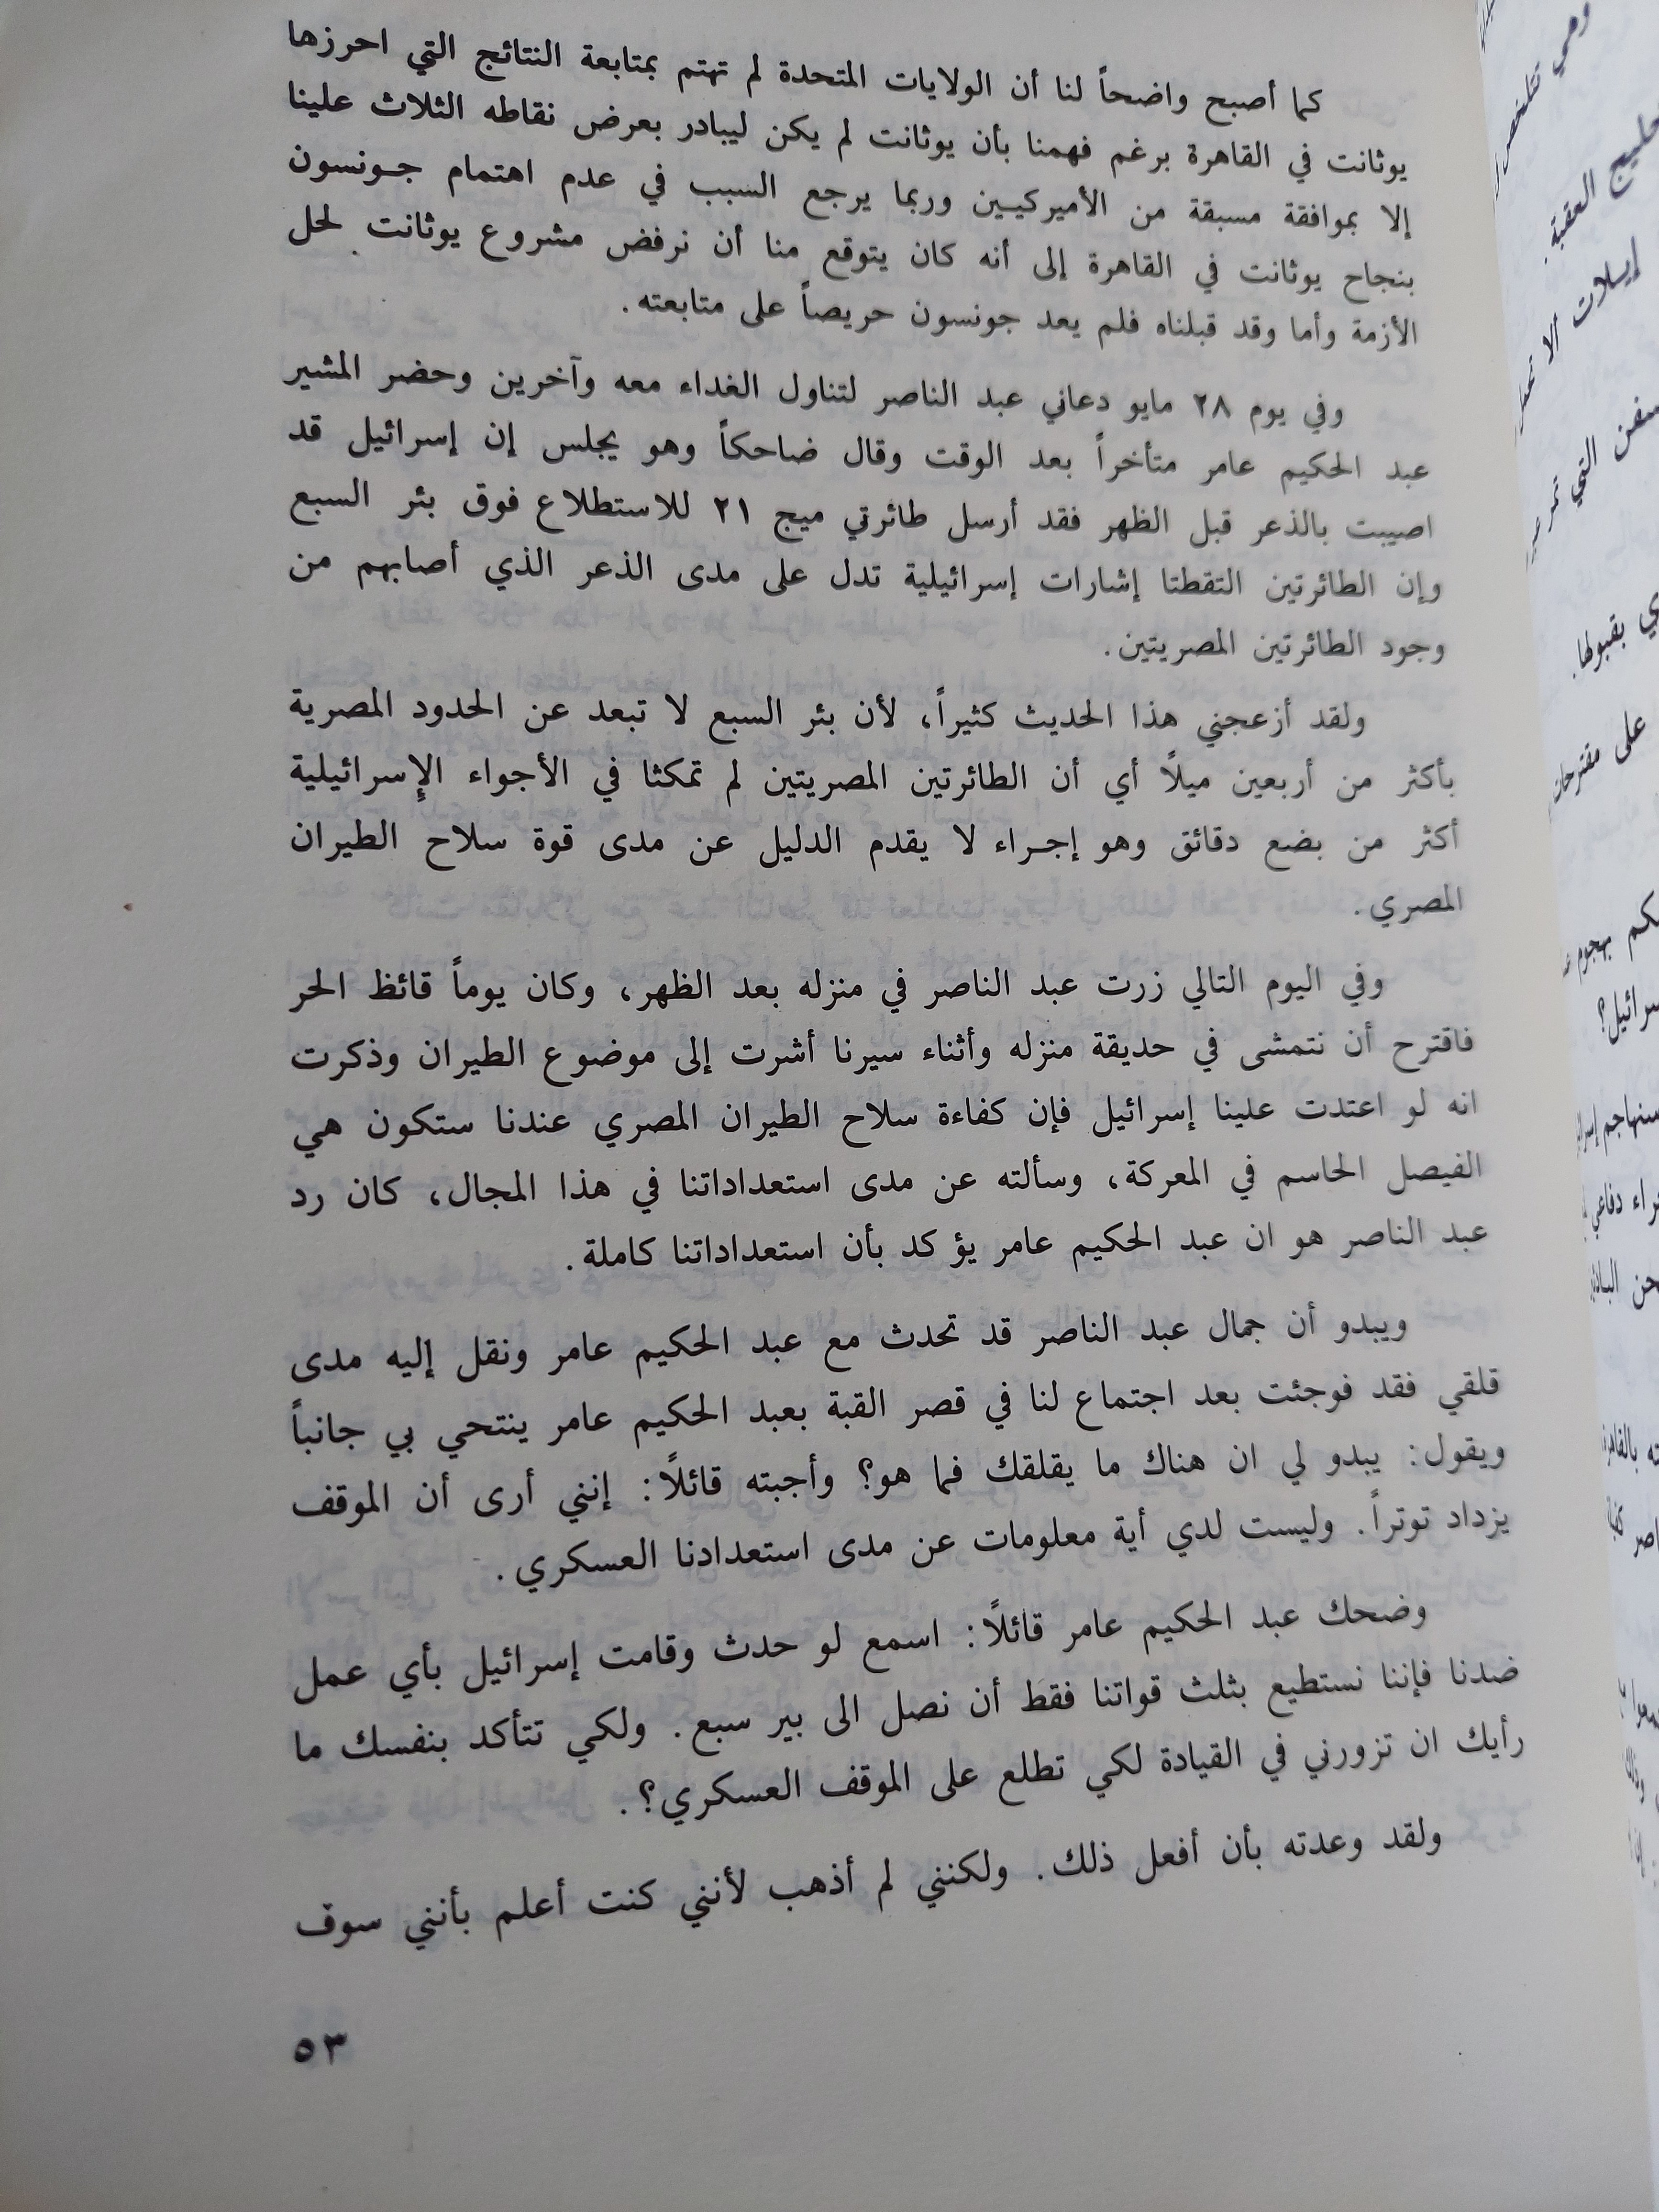 كما أصبح واضحاً لنا أن الولايات المتحدة لم تهتم بمتابعة النتائج التي احرزها
يوثانت في القاهرة برغم فهمنا بأن يوثانت لم يكن ليبادر بعرض نقاطه الثلاث علينا
إلا بموافقة مسبقة من الأميركيـين وربما يرجع السبب في عدم اهتمام جـونسون
بنجاح يوثانت في القاهرة إلى أنه كان يتوقع منا أن نرفض مشروع يوثانت لحل
الأزمة وأما وقد قبلناه فلم يعد جونسون حريصاً على متابعته.
وفي يوم ٢٨ مايو دعاني عبد الناصر لتناول الغداء معه وآخرين وحضر المشير
عبد الحكيم عامر متأخراً بعد الوقت وقال ضاحكاً وهو يجلس إن إسرائيل قد
اصيبت بالذعر قبل الظهر فقد أرسل طائرتي ميج ٢١ للاستطلاع فوق بئر السبع
وإن الطائرتين التقطتا إشارات إسرائيلية تدل على مدى الذعر الذي أصابهم من
وجود الطائرتين المصريتين.
ولقد أزعجني هذا الحديث كثيراً، لأن بئر السبع لا تبعد عن الحدود المصرية
بأكثر من أربعين ميلاً أي أن الطائرتين المصريتين لم تمكثا في الأجواء الإسرائيلية
أكثر من بضع دقائق وهو إجـراء لا يقدم الدليل عن مدى قوة سلاح الطيران
المصري.
وفي اليوم التالي زرت عبد الناصر في منزله بعد الظهر، وكان يوماً قائظ الحر
فاقترح أن نتمشى في حديقة منزله وأثناء سيرنا أشرت إلى موضوع الطيران وذكرت
انه لو اعتدت علينا إسرائيل فإن كفاءة سلاح الطيران المصري عندنا ستكون هي
الفيصل الحاسم في المعركة، وسألته عن مدى استعداداتنا في هذا المجال، كان رد
عبد الناصر هو ان عبد الحكيم عامر يؤكد بأن استعداداتنا كاملة.
ويبدو أن جمال عبد الناصر قد تحدث مع عبد الحكيم عامر ونقل إليه مدى
قلقي فقد فوجئت بعد اجتماع لنا في قصر القبة بعبد الحكيم عامر ينتحي بي جانباً
ويقول: يبدو لي ان هناك ما يقلقك فما هو؟ وأجبته قائلاً: إنني أرى أن الموقف
يزداد توتراً. وليست لدي أية معلومات عن مدى استعدادنا العسكري.
وضحك عبد الحكيم عامر قائلاً: اسمع لو حدث وقامت إسرائيل بأي عمل
ضدنا فإننا نستطيع بثلث قواتنا فقط أن نصل الى بير سبع. ولكي تتأكد بنفسك ما
رأيك ان تزورني في القيادة لكي تطلع على الموقف العسكري؟.
ولقد وعدته بأن أفعل ذلك. ولكنني لم أذهب لأنني كنت أعلم بأنني سوف
٥٣
خليج العقبة
إيلات ألا
ي بقبولها.
على مقترحات